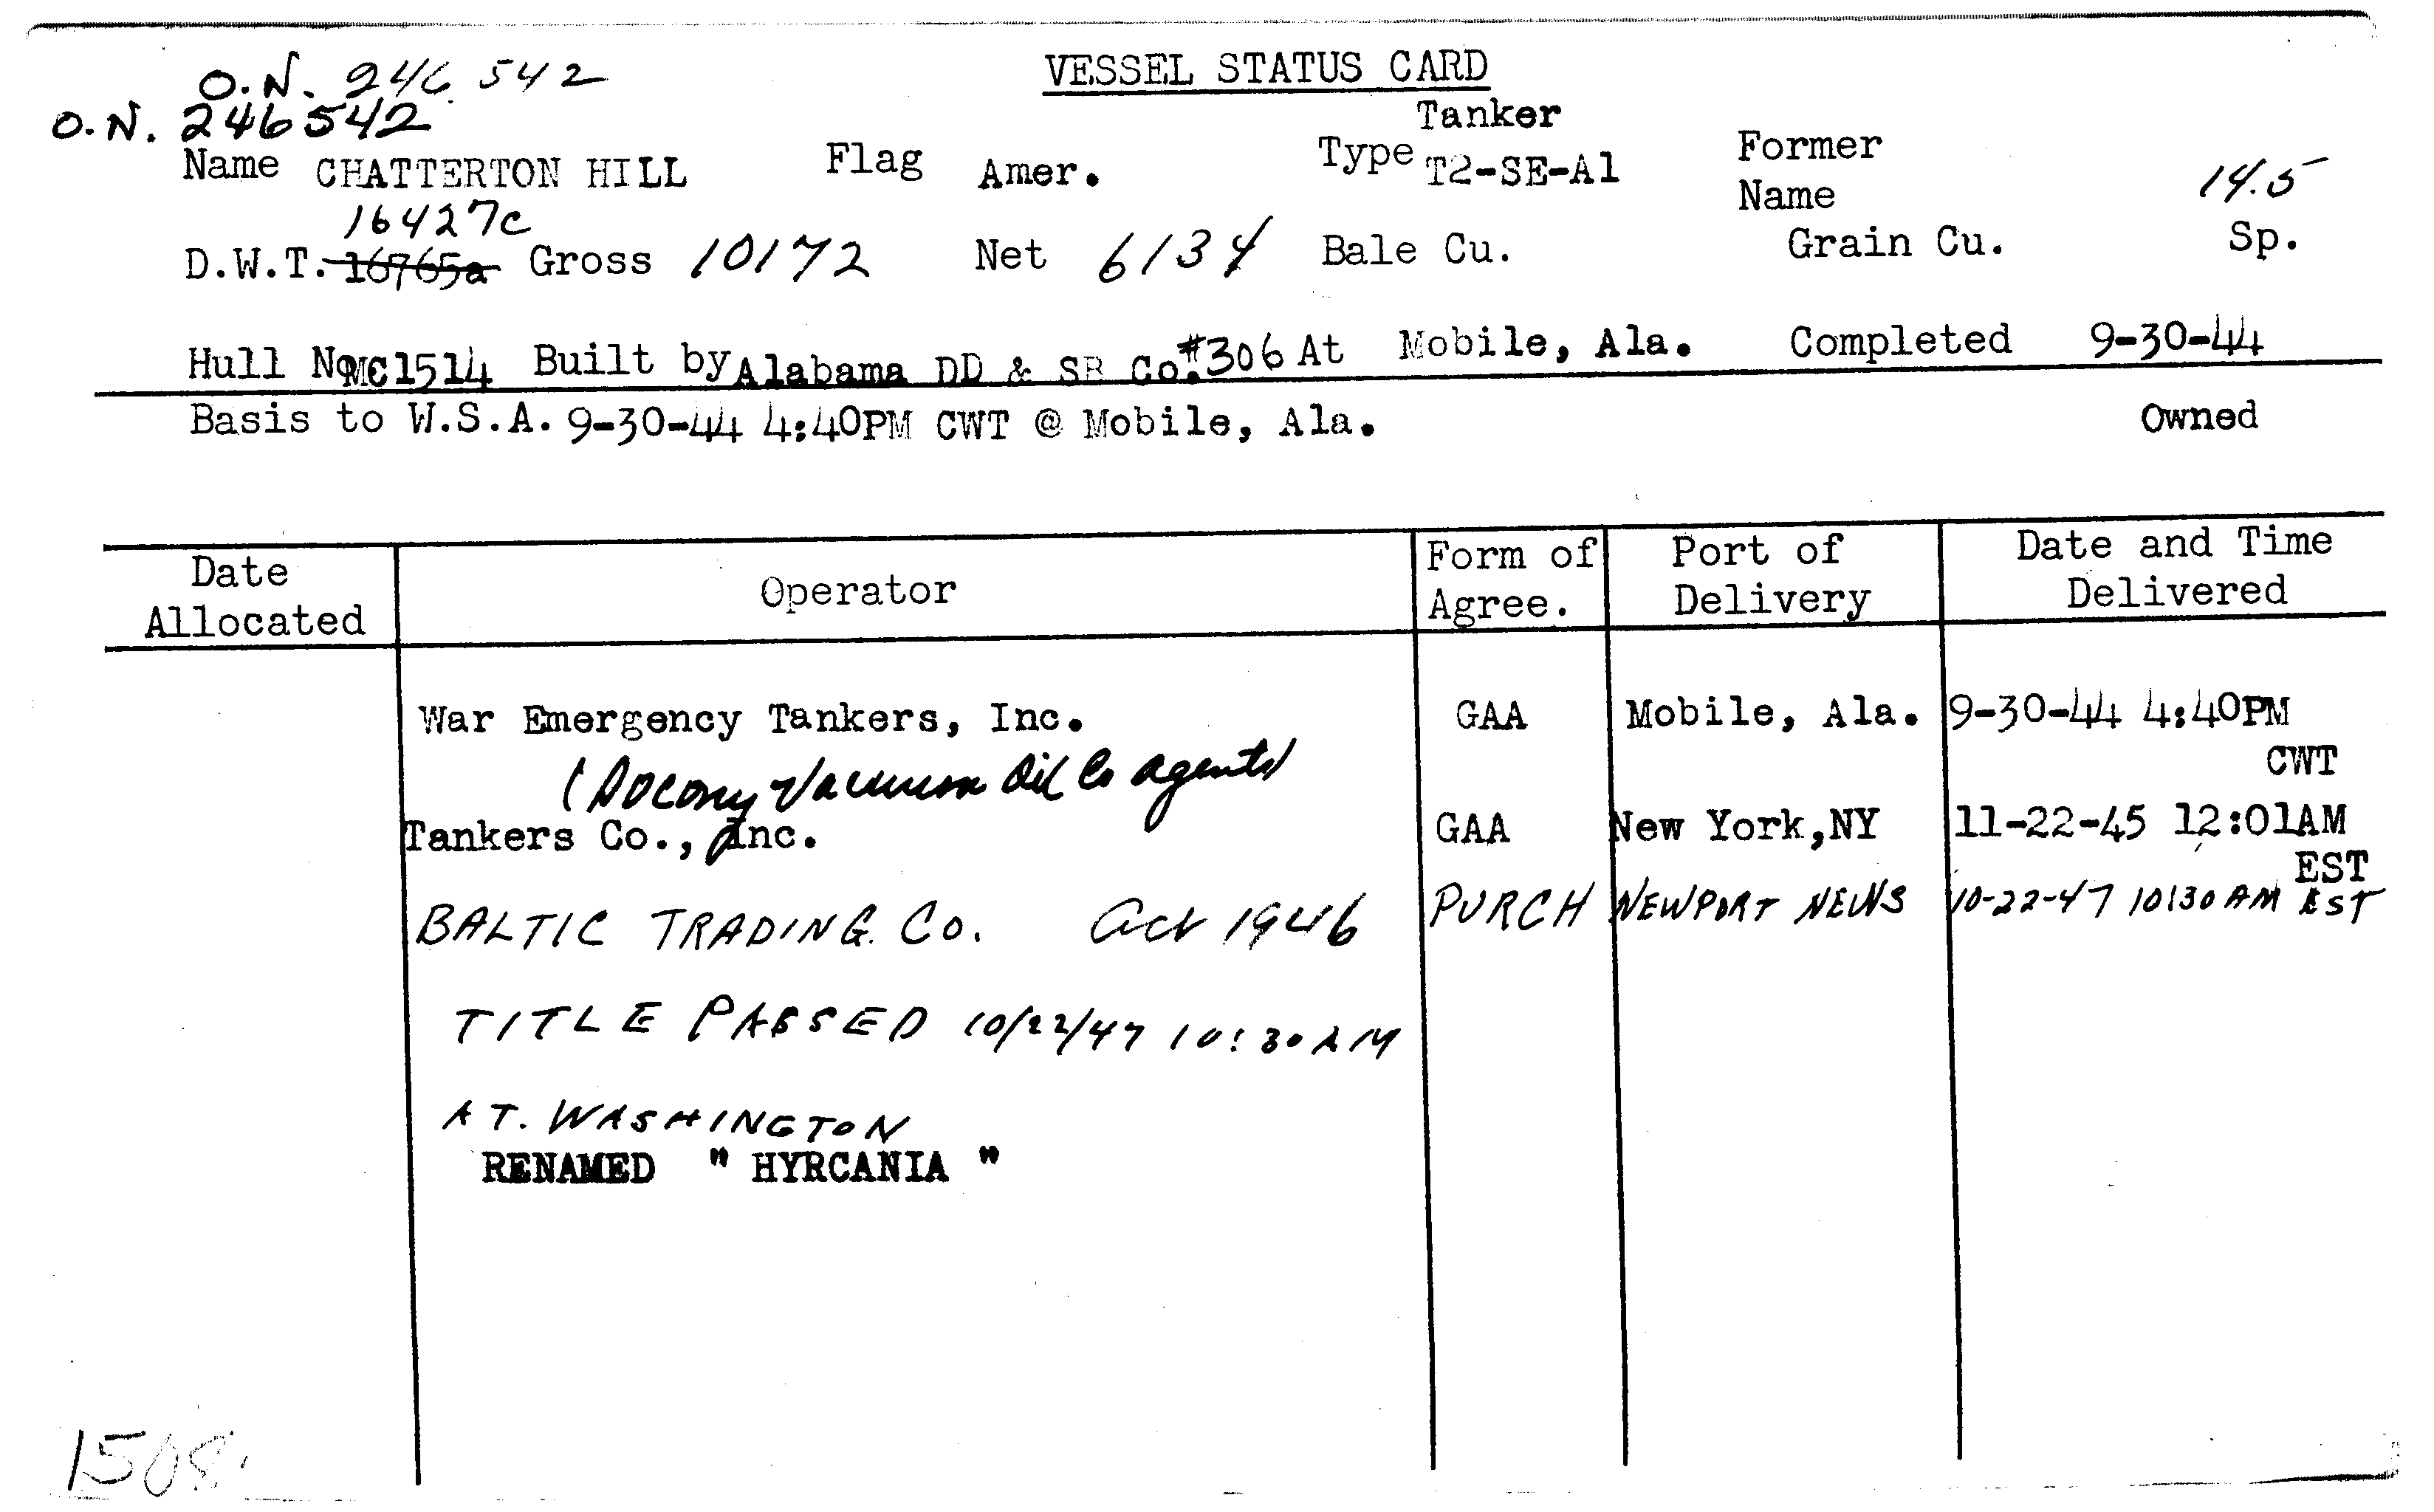 VESSEL STATUS CARD
O.N. 246 542
O.N. 246542
Tanker
Name CHATTERTON HILL Flag Amer. Type T2-SE-A1 Former Name 14.5
16427c
D.W.T. 16765a Gross 10172 Net 6134 Bale Cu. Grain Cu. Sp.
Hull No MC1514 Built by Alabama DD & SB Co. #306 At Mobile, Ala. Completed 9-30-44
Basis to W.S.A. 9-30-44 4:40PM CWT @ Mobile, Ala. Owned
Date Allocated Operator Form of Agree. Port of Delivery Date and Time Delivered
War Emergency Tankers, Inc. GAA Mobile, Ala. 9-30-44 4:40PM
CWT
(Socony Vacuum Oil Co agents)
Tankers Co., Inc. GAA New York,NY 11-22-45 12:01AM
EST
BALTIC TRADING Co. Act 1946 PURCH NEWPORT NEWS 10-22-47 10:30 AM EST
TITLE PASSED 10/22/47 10:30 AM
AT. WASHINGTON
RENAMED " HYRCANIA "
1508